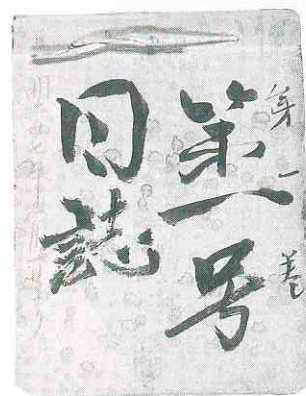 第一巻
第一号
日誌